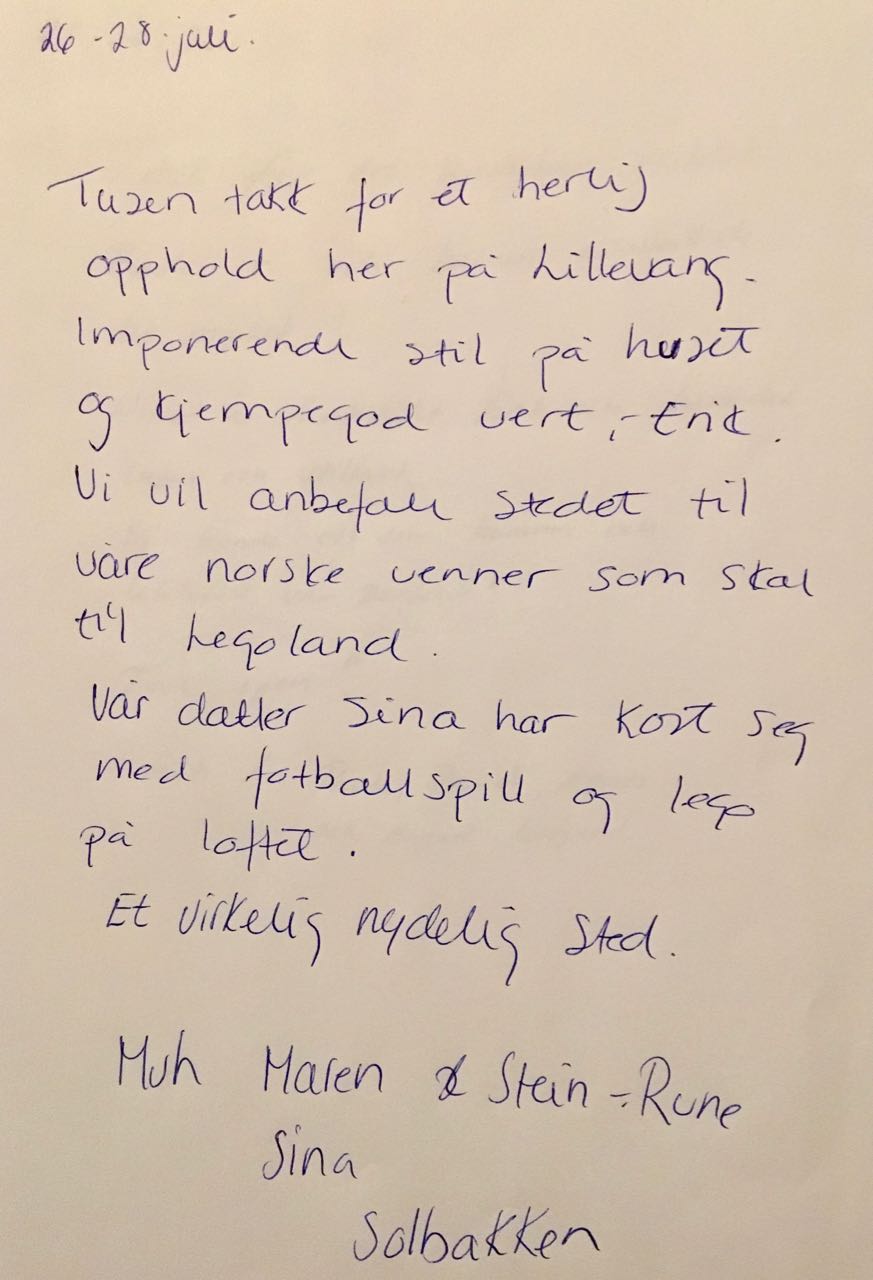 26 - 28. juli.
Tusen takk for et herlig
opphold her på Lillevang.
Imponerende stil på huset
og kjempegod vert, - Erik.
Vi vil anbefale stedet til
våre norske venner som skal
til Legoland.
Vår datter Sina har kost seg
med fotballspill og lego
på loftet.
Et virkelig nydelig sted.
Mvh Maren & Stein-Rune
Sina
Solbakken